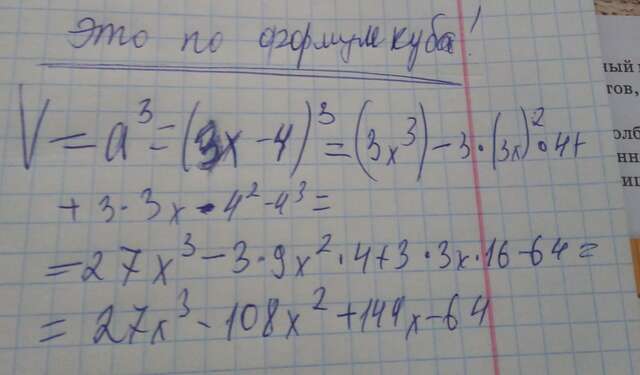 Это по формуле куба!
V = a³ = (3x - 4)³ = (3x³) - 3·(3x)²·4+
+ 3·3x·4² - 4³ =
= 27x³ - 3·9x²·4+3·3x·16-64 =
= 27x³ - 108x² + 144x - 64
ный
тов,